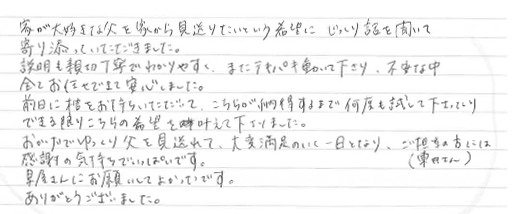 家が大好きな父を家から見送りたいという希望に じっくり話を聞いて
寄り添っていただきました。
説明も親切丁寧でわかりやすく、またテキパキ動いて下さり、不安な中
全てお任せできて安心しました。
前日に棺をお持ちいただいて、こちらが納得するまで何度も試して下さったり
できる限りこちらの希望を叶えて下さいました。
おかげでゆっくり父を見送れて、大変満足のいく一日となり、ご担当の方には
感謝の気持ちでいっぱいです。
さんにお願いしてよかったです。
ありがとうございました。